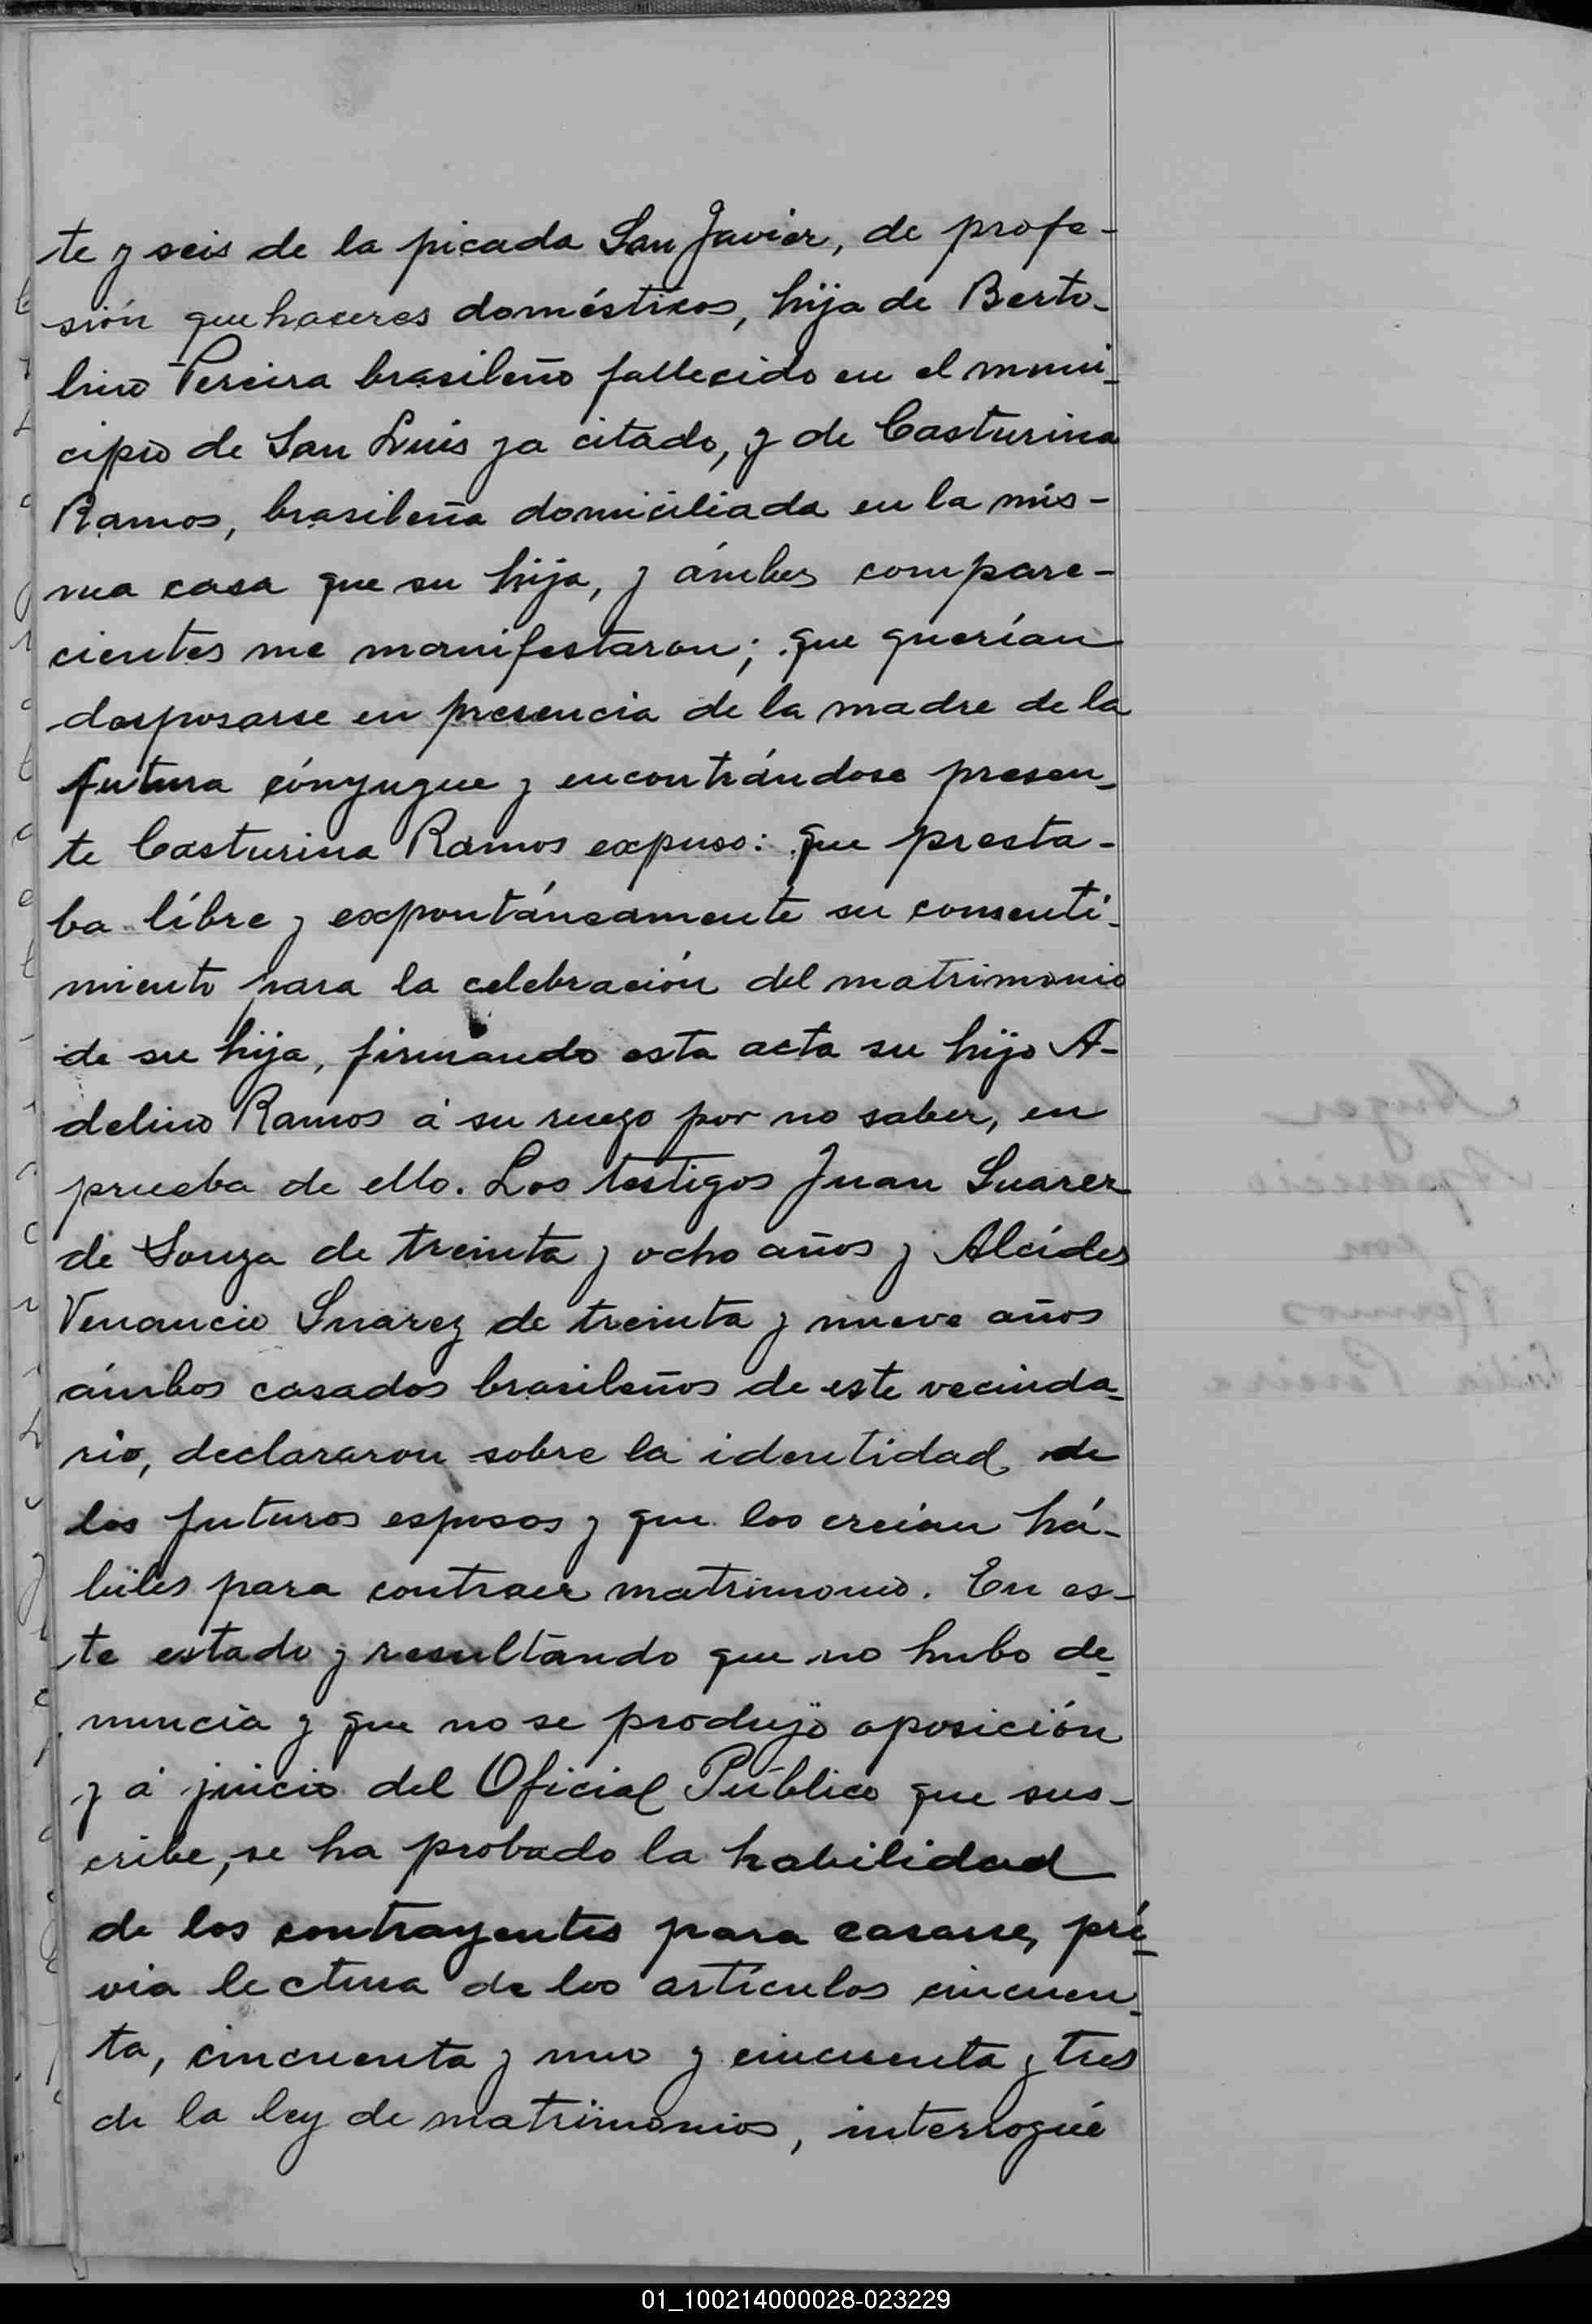 te y seis de la picada San Javier, de profe-
sión quehaceres domésticos, hija de Berto-
lino Pereira brasileño fallecido en el muni-
cipio de San Luis ya citado, y de Casturina
Ramos, brasileña domiciliada en la mis-
ma casa que su hija, y ámbos compare-
cientes me manifestaron; que querían
desposarse en presencia de la madre de la
futura cónyugue y encontrándose presen-
te Casturina Ramos expuso: que presta-
ba líbre y expontáneamente su consenti-
miento para la celebración del matrimonio
de su hija, firmando esta acta su hijo A-
delino Ramos á su ruego por no saber, en
prueba de ello. Los testigos Juan Suarez
de Souza de treinta y ocho años y Alcídes
Venancio Suarez de treinta y nueve años
ámbos casados brasileños de este vecinda-
rio, declararon sobre la identidad de
los futuros esposos y que los creían há-
biles para contraer matrimonio. En es-
te estado y resultando que no hubo de-
nuncia y que no se produjo oposición
y á juicio del Oficial Público que sus-
cribe, se ha probado la habilidad
de los contrayentes para casarse, pré-
via lectura de los artículos cincuen-
ta, cincuenta y uno y cincuenta y tres
de la ley de matrimonios, interrogué
01_100214000028-023229